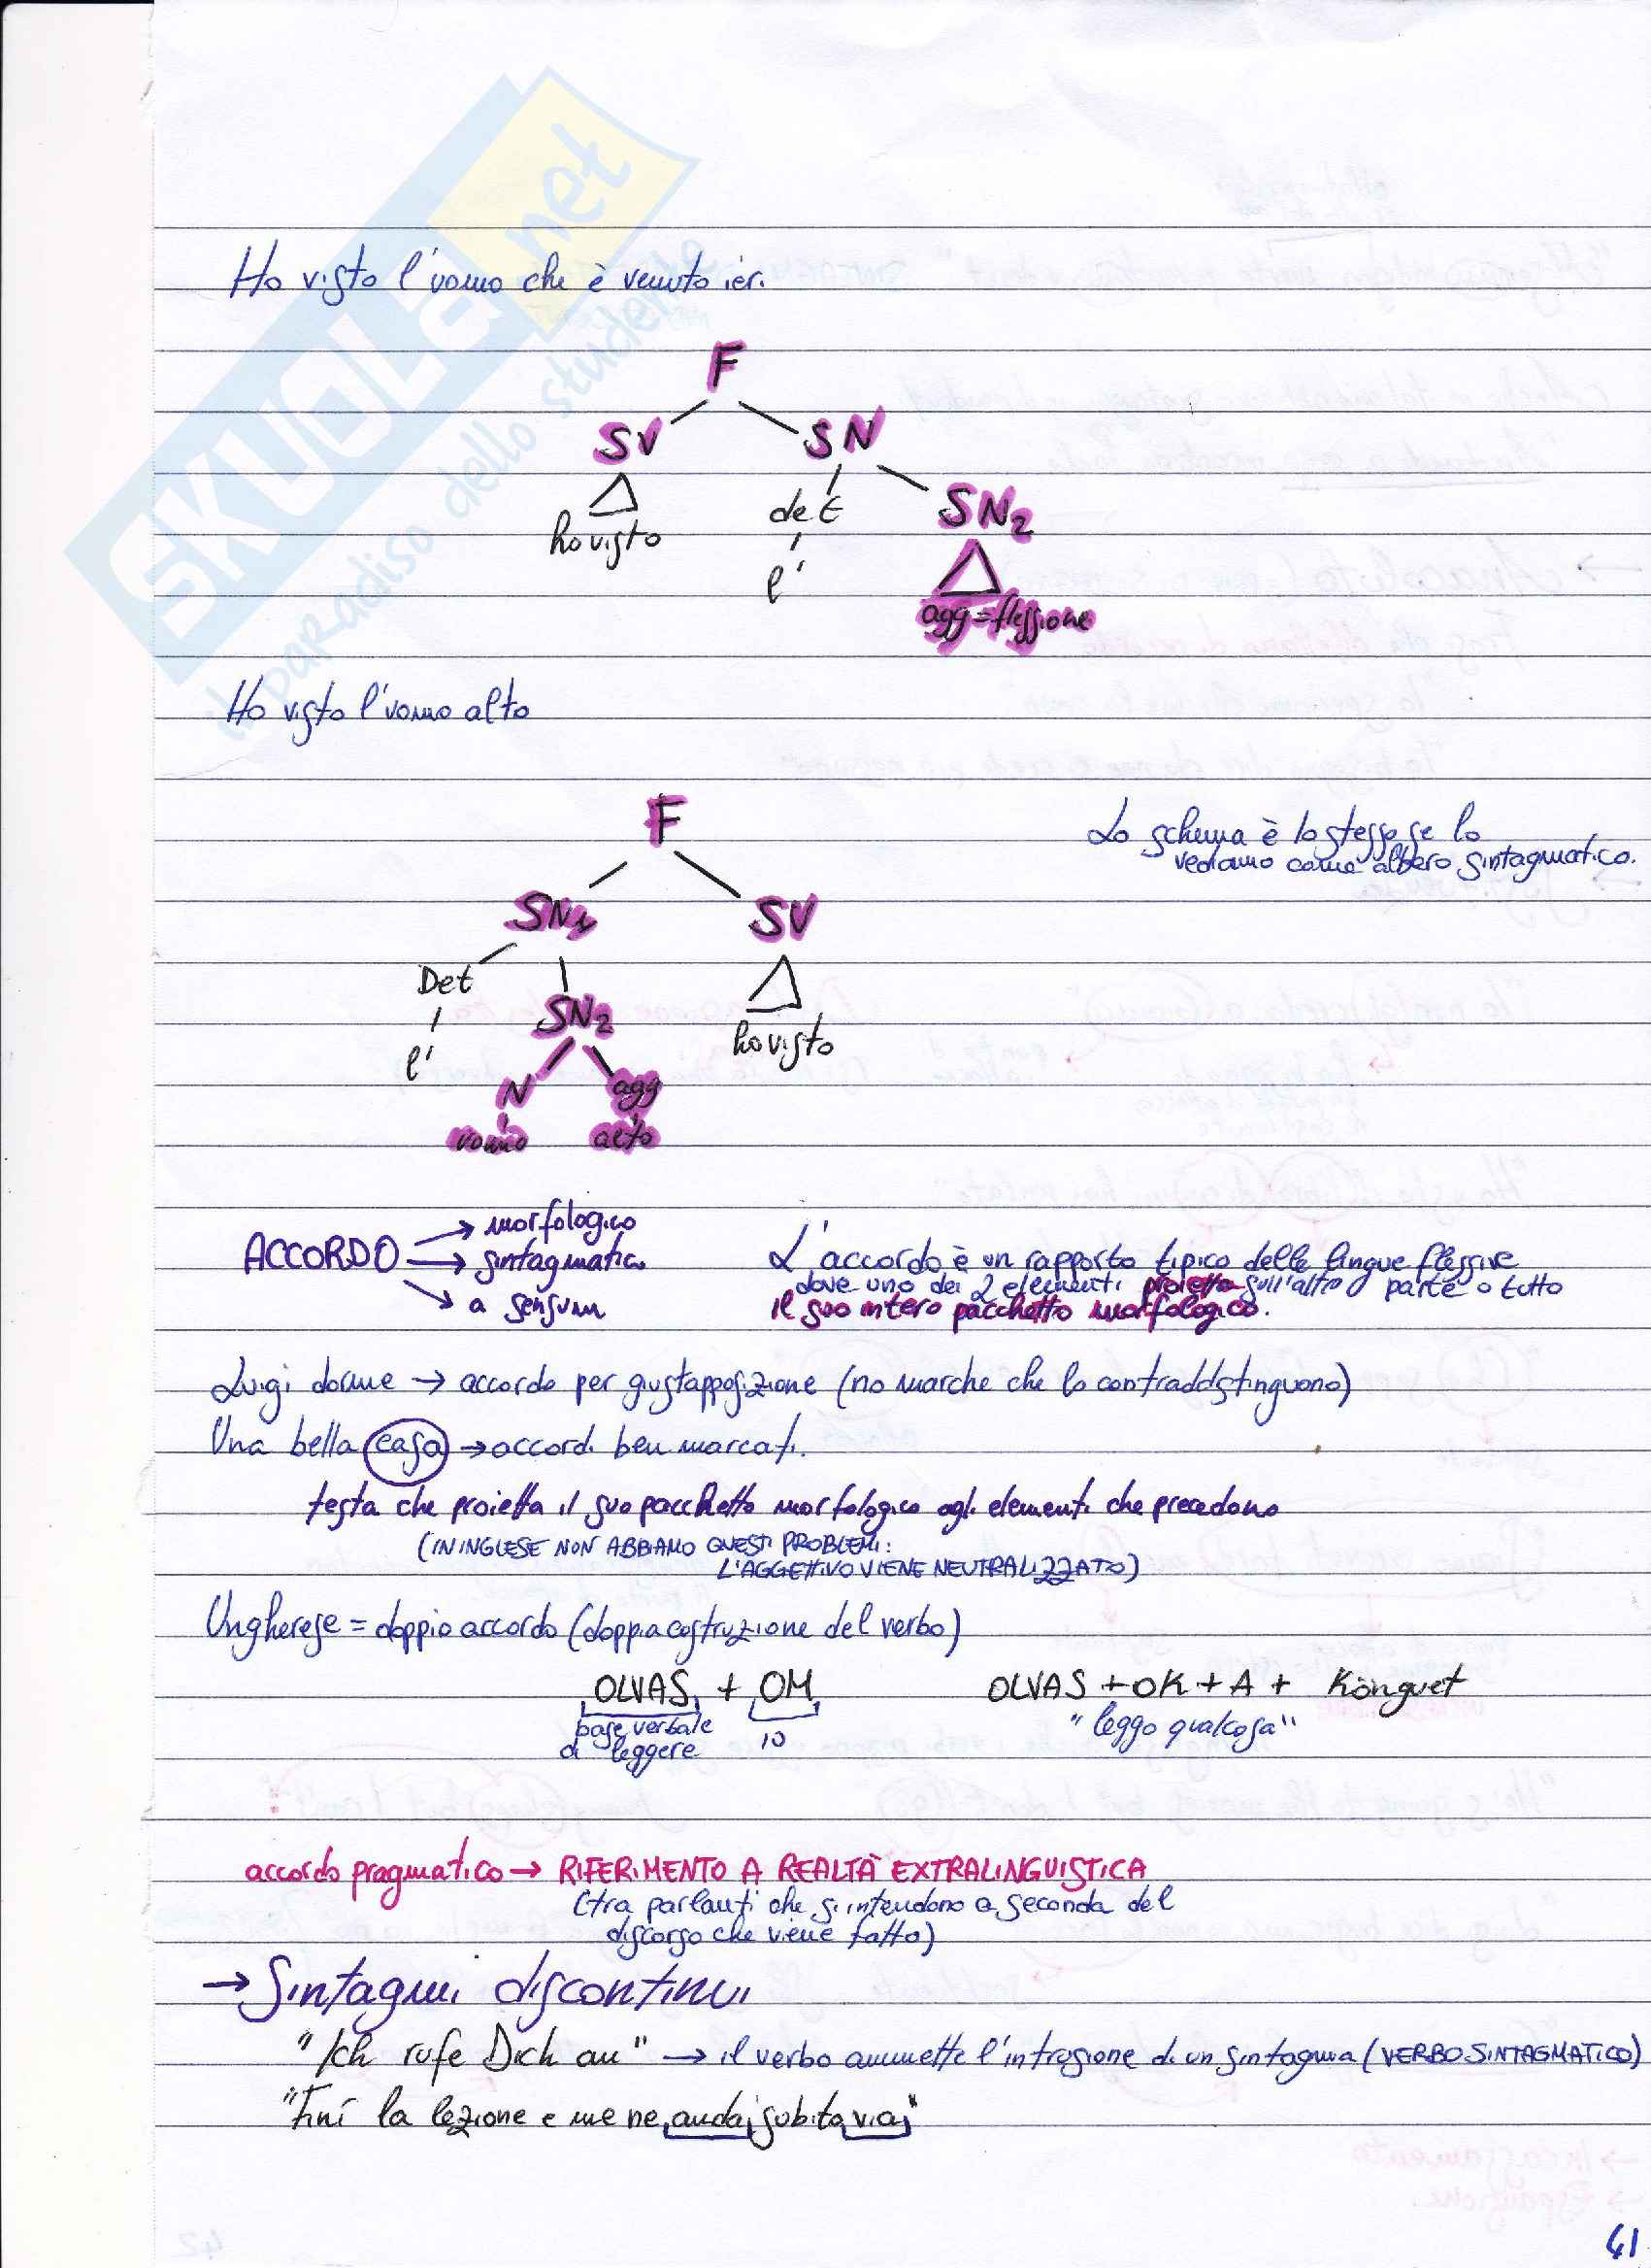 Ho visto l'uomo che è venuto ieri.
F
SV SN
ho visto det SN2
l'
agg = flessione
Ho visto l'uomo alto
F
Lo schema è lo stesso se lo
vediamo come albero sintagmatico.
SN1 SV
Det SN2 ho visto
l' N agg
uomo alto
ACCORDO → morfologico
→ sintagmatico
→ a sensum
L'accordo è un rapporto tipico delle lingue flessive
dove uno dei 2 elementi proietta sull'altro parte o tutto
il suo intero pacchetto morfologico.
Luigi dorme → accordo per giustapposizione (no marche che lo contraddistinguono)
Una bella casa → accordi ben marcati.
testa che proietta il suo pacchetto morfologico agli elementi che precedono
(IN INGLESE NON ABBIAMO QUESTI PROBLEMI:
L'AGGETTIVO VIENE NEUTRALIZZATO)
Ungherese = doppio accordo (doppia costruzione del verbo)
OLVAS + OM OLVAS + OK + A + Könguet
base verbale io "leggo qualcosa"
di leggere
accordo pragmatico → RIFERIMENTO A REALTÀ EXTRALINGUISTICA
(tra parlanti che si intendono a seconda del
discorso che viene fatto)
→ Sintagmi discontinui
"Ich rufe Dich an" → il verbo ammette l'intrusione di un sintagma (VERBO SINTAGMATICO)
"Finì la lezione e me ne andai subito via"
41
SKUOLA.net
il paradiso dello studente